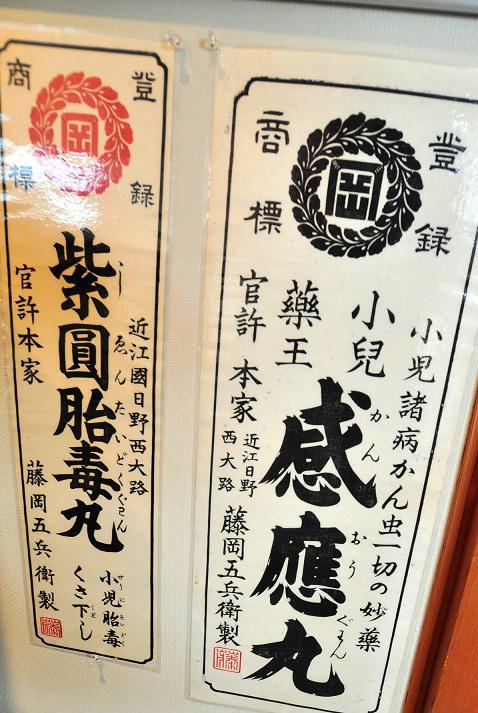 登録
商標
岡
小児諸病かん虫一切の妙藥
小兒
藥王
感應丸
かんおうぐわん
官許 本家
近江日野
西大路
藤岡五兵衛製
登録
商標
岡
近江國日野西大路
紫圓胎毒丸
しゑんたいどくぐわん
官許本家
藤岡五兵衛製
小児胎毒
くさ下し